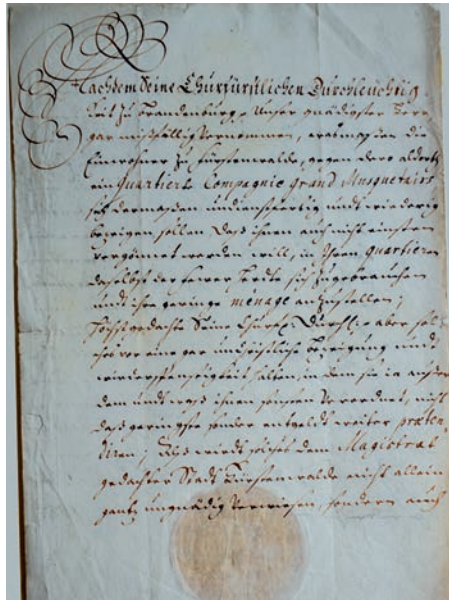 Nachdem Seine Churfürstlichen Durchleuchtig
keit zu Brandenburg, Unser gnädigster Herr
gar mißfällig vernommen, was maßen die
Einwohner zu Fürstenwalde, gegen dero
ein quartierte Compagnie grand Musquetairs
sich dermaßen undienstfertig undt wiederig
bezeigen sollen daß ihnen auch nicht einsten
vergönnet werden will, in Ihren quartieren
daselbst der feuer Heerdte sich zugebrauchen
undt ihre geringe ménage anzustellen;
Höchstgedachte Seine Churf. Durchl. aber sol
ches vor eine gar unchristliche bezeigung undt
wiederspenstigkeit halten, in dem sie ja außer
dem undt was ihnen verordnet, nicht
das geringste sonder entgeldt weiter præten
diren; Als wirdt solches dem Magistrat
gedachter Stadt Fürstenwalde nicht allein
gantz ungnädig verwiesen, sondern auch